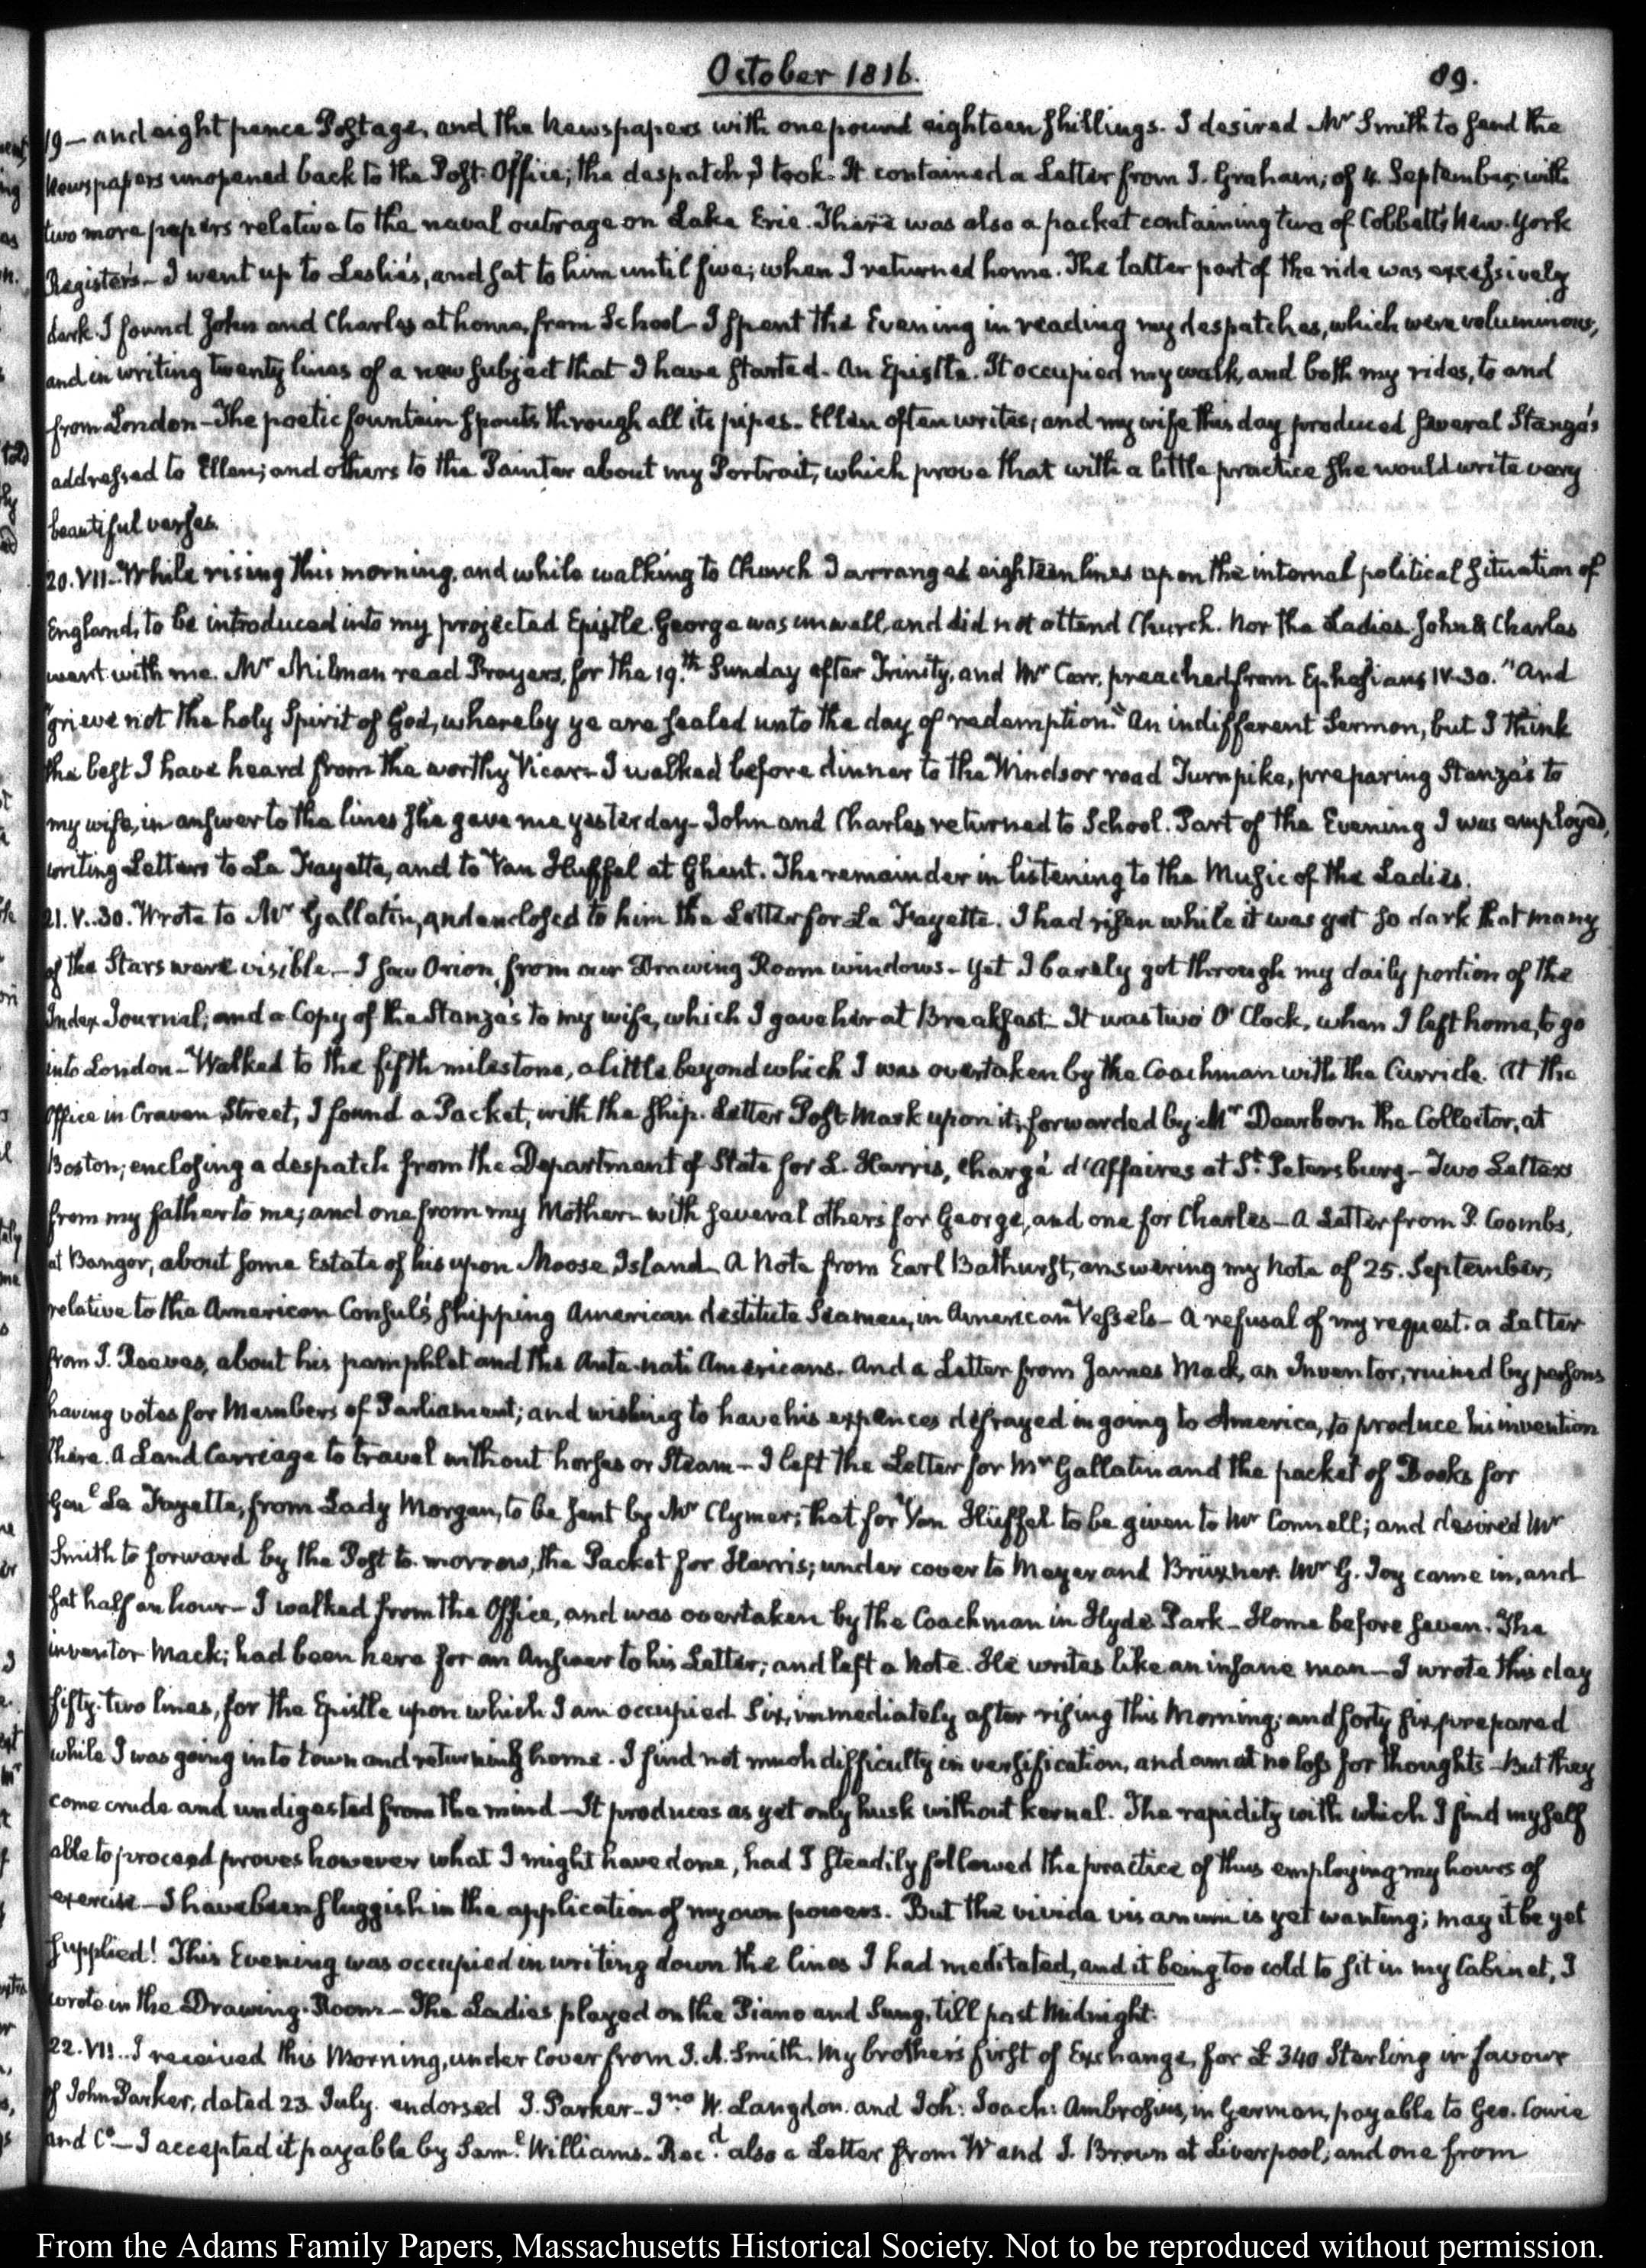 October 1816.
89.
19 — and eight pence Postage, and the Newspapers with one pound eighteen shillings. I desired Mr Smith to send the
Newspapers unopened back to the Post-Office; the despatch, I took. It contained a Letter from J. Graham, of 4. September, with
two more papers relative to the naval outrage on Lake Erie. There was also a packet containing two of Cobbett's New-York
Registers — I went up to Leslie's, and sat to him until five; when I returned home. The latter part of the ride was excessively
dark. I found John and Charles at home, from School — I spent the Evening in reading my despatches, which were voluminous,
and in writing twenty lines of a new subject that I have started — An Epistle. It occupied my walk, and both my rides, to and
from London — The poetic fountain spouts through all its pipes — Ellen often writes; and my wife this day produced several Stanza's
addressed to Ellen; and others to the Painter about my Portrait, which prove that with a little practice she would write very
beautiful verses.
20. VII. While rising this morning, and while walking to Church I arranged eighteen lines upon the internal political situation of
England, to be introduced into my projected Epistle. George was unwell, and did not attend Church. Nor the Ladies. John & Charles
went with me. Mr Milman read Prayers, for the 19.th Sunday after Trinity, and Mr Carr, preached from Ephesians IV. 30. "And
grieve not the holy Spirit of God, whereby ye are sealed unto the day of redemption." An indifferent Sermon, but I think
the best I have heard from the worthy Vicar — I walked before dinner to the Windsor road Turnpike, preparing Stanza's to
my wife, in answer to the lines she gave me yesterday — John and Charles returned to School. Part of the Evening I was employed,
writing Letters to La Fayette, and to Van Huffel at Ghent. The remainder in listening to the Music of the Ladies.
21. V. 30. Wrote to Mr Gallatin, and enclosed to him the Letter for La Fayette. I had risen while it was yet so dark that many
of the Stars were visible — I saw Orion, from our Drawing Room windows — Yet I barely got through my daily portion of the
Index Journal, and a Copy of the Stanza's to my wife, which I gave her at Breakfast — It was two O'Clock, when I left home, to go
into London — Walked to the fifth milestone, a little beyond which I was overtaken by the Coachman with the Curricle. At the
Office in Craven Street, I found a Packet, with the ship-Letter Post Mark upon it, forwarded by Mr Dearborn the Collector, at
Boston; enclosing a despatch from the Department of State for L. Harris, Chargé d'Affaires at St Petersburg — Two Letters
from my father to me; and one from my Mother — with several others for George, and one for Charles — A Letter from P. Coombs,
at Bangor, about some Estate of his upon Moose Island — A Note from Earl Bathurst, answering my Note of 25. September,
relative to the American Consul's shipping American destitute Seamen, in American Vessels — A refusal of my request. a Letter
from J. Reeves, about his pamphlet and the Ante-nati Americans. And a Letter from James Mack, an Inventor, ruined by persons
having votes for Members of Parliament; and wishing to have his expences defrayed in going to America, to produce his invention
there. A Land Carriage to travel without horses or Steam — I left the Letter for Mr Gallatin and the packet of Books for
Genl La Fayette, from Lady Morgan, to be sent by Mr Clymer; that for Van Hüffel to be given to Mr Connell; and desired Mr
Smith to forward by the Post to-morrow, the Packet for Harris; under cover to Meyer and Brüxner. Mr G. Joy came in, and
sat half an hour — I walked from the Office, and was overtaken by the Coachman in Hyde Park — Home before seven. The
inventor Mack; had been here for an Answer to his Letter; and left a Note. He writes like an insane man — I wrote this day
fifty-two lines, for the Epistle upon which I am occupied. Six, immediately after rising this Morning; and forty six, prepared
while I was going into town and returning home. I find not much difficulty in versification, and am at no loss for thoughts — But they
come crude and undigested from the mind — It produces as yet only husk without kernel. The rapidity with which I find myself
able to proceed proves however what I might have done, had I steadily followed the practice of thus employing my hours of
exercise — I have been sluggish in the application of my own powers. But the vivida vis animi is yet wanting; may it be yet
supplied! This Evening was occupied in writing down the lines I had meditated, and it being too cold to sit in my Cabinet, I
wrote in the Drawing-Room — The Ladies played on the Piano and Sung, till past Midnight.
22. VII. I received this Morning, under Cover from J. A. Smith, My brother's first of Exchange, for £340 Sterling in favour
of John Parker, dated 23 July. endorsed J. Parker — Jno W. Langdon. and Joh: Joach: Ambrosius, in German, payable to Geo. Cowie
and Co — I accepted it payable by Saml Williams. Recd also a Letter from W and J. Brown at Liverpool; and one from
From the Adams Family Papers, Massachusetts Historical Society. Not to be reproduced without permission.